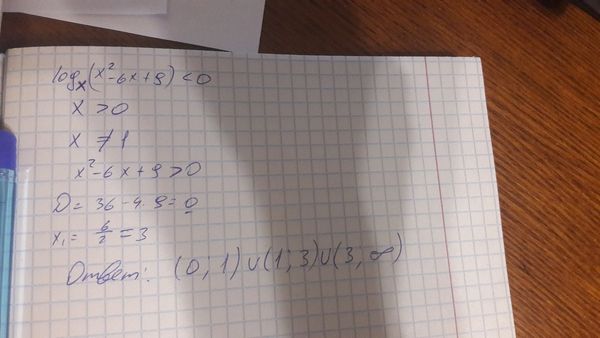 logₓ(x²-6x+9)<0
x >0
x ≠ 1
x²-6x+9>0
D= 36-4·9=0
x₁= 6/2 =3
Ответ: (0; 1)∪(1; 3)∪(3; ∞)